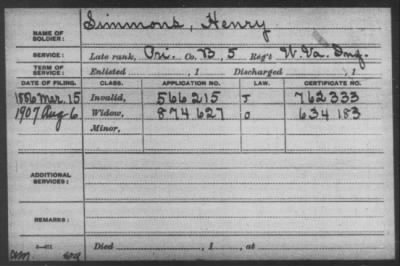 NAME OF SOLDIER: Simmons, Henry
SERVICE: Late rank, Pri. Co. B, 5 Reg't W.Va. Inf.
TERM OF SERVICE: Enlisted , 1 Discharged , 1
DATE OF FILING. CLASS. APPLICATION NO. LAW. CERTIFICATE NO.
1886 Mar. 15 Invalid, 566215 J 762333
1907 Aug 6 Widow, 874627 O 634183
Minor,
ADDITIONAL SERVICES:
REMARKS:
Died , 1 , at